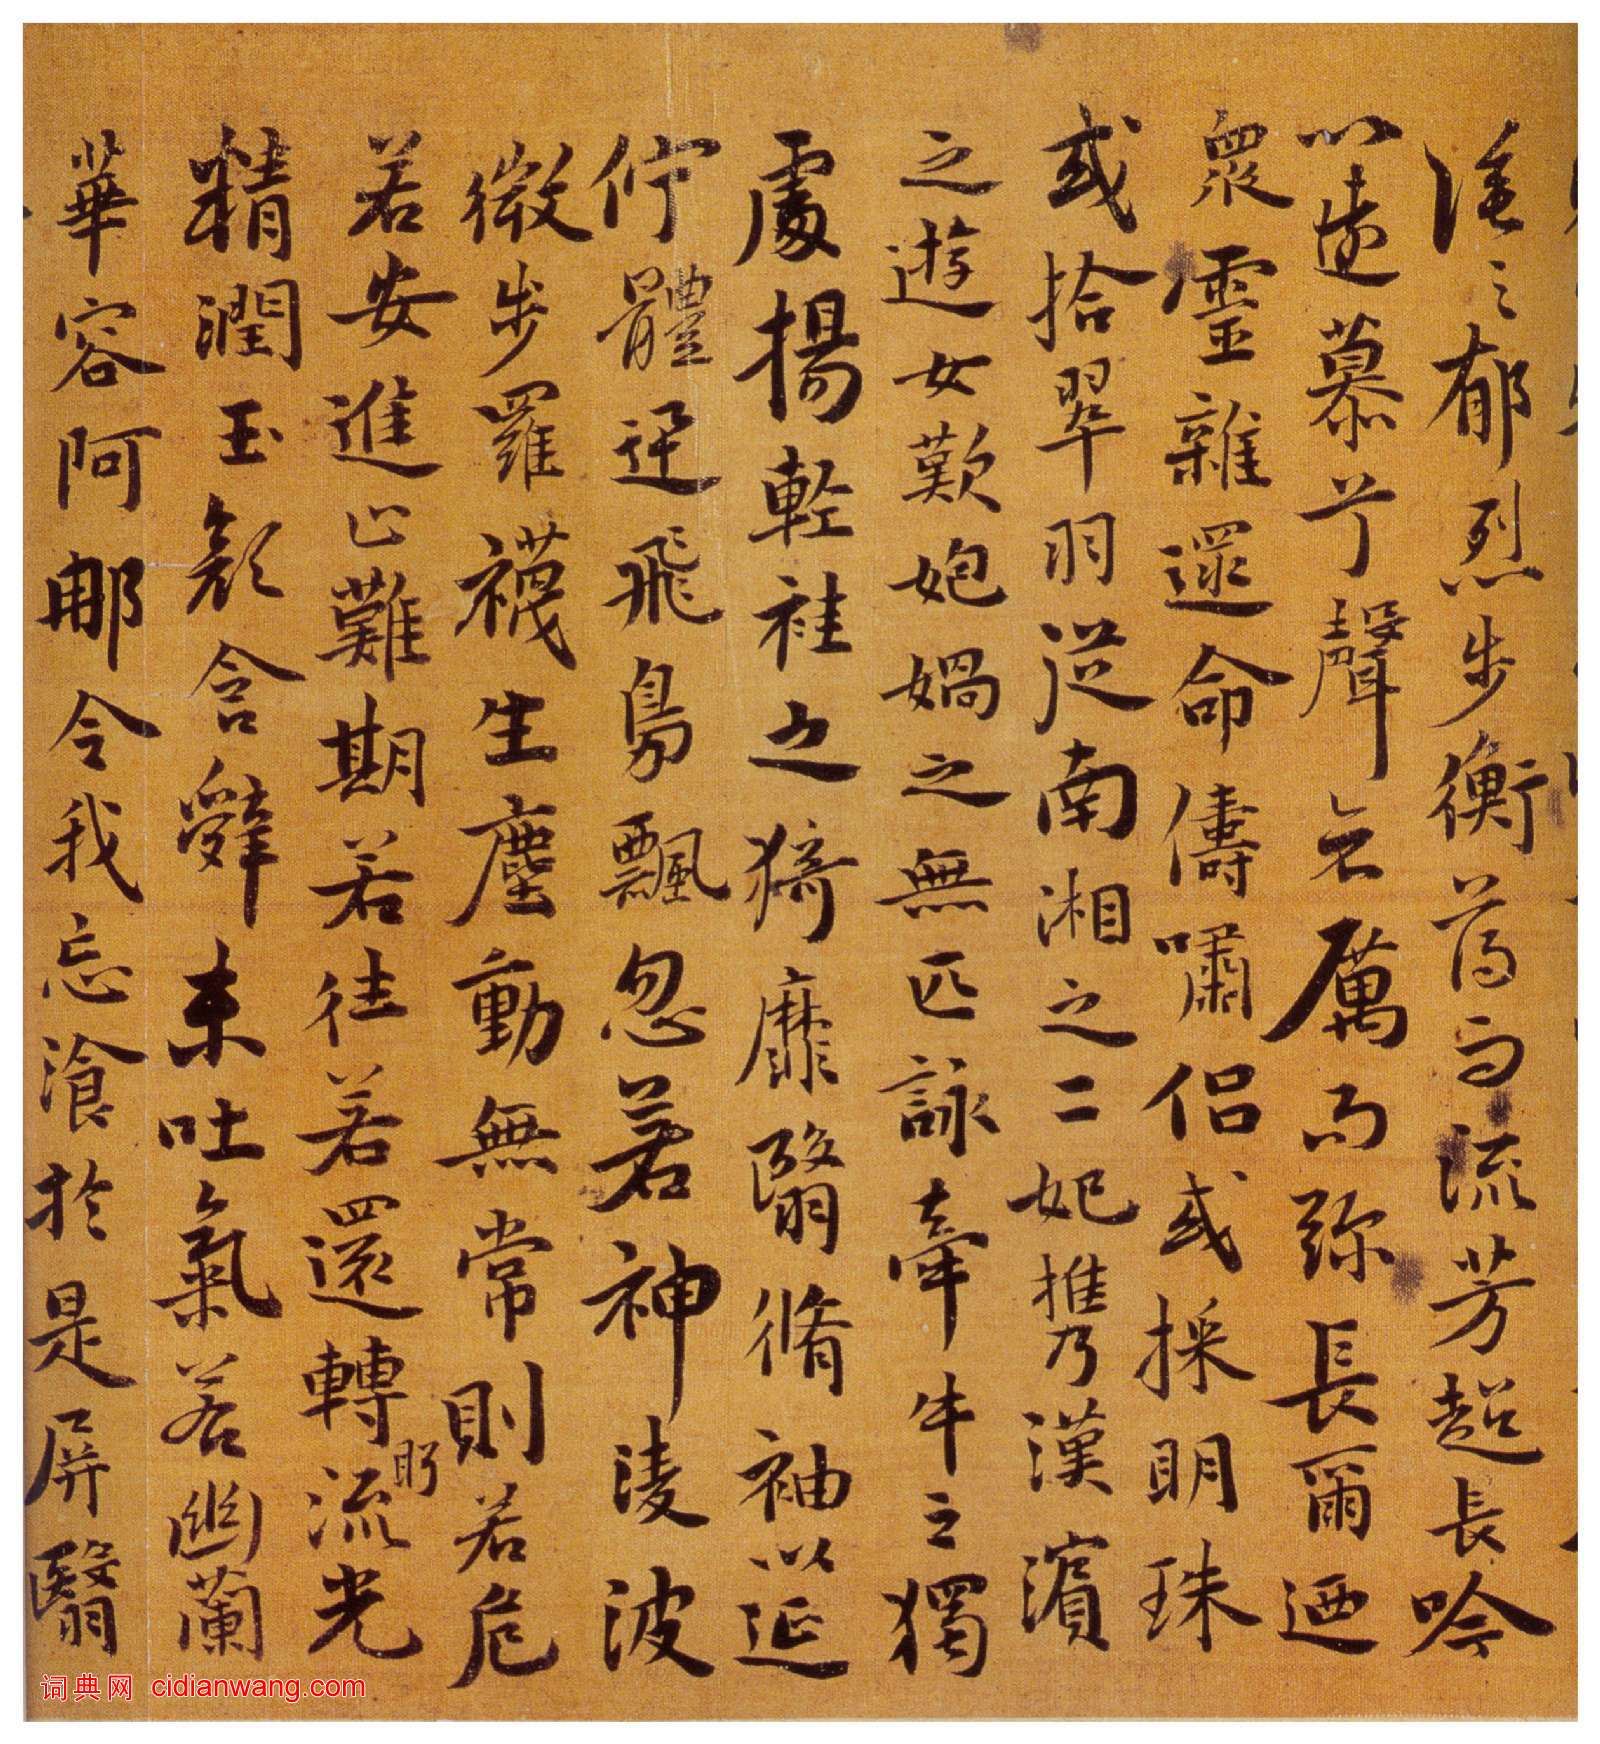 塗之郁烈步衡薄而流芳超長吟
以遠慕兮聲哀厲而彌長爾迺
眾靈雜遝命儔嘯侶或採明珠
或拾翠羽從南湘之二妃攜漢濱
之遊女歎㚿媧之無匹詠牽牛之獨
處揚輕袿之猗靡翳脩袖以延
佇體迅飛鳧飄忽若神淩波
微步羅襪生塵動無常則若危
若安進止難期若往若還轉眄流光
精潤玉顏含辭未吐氣若幽蘭
華容阿那令我忘湌於是屏翳
词典网 cidianwang.com